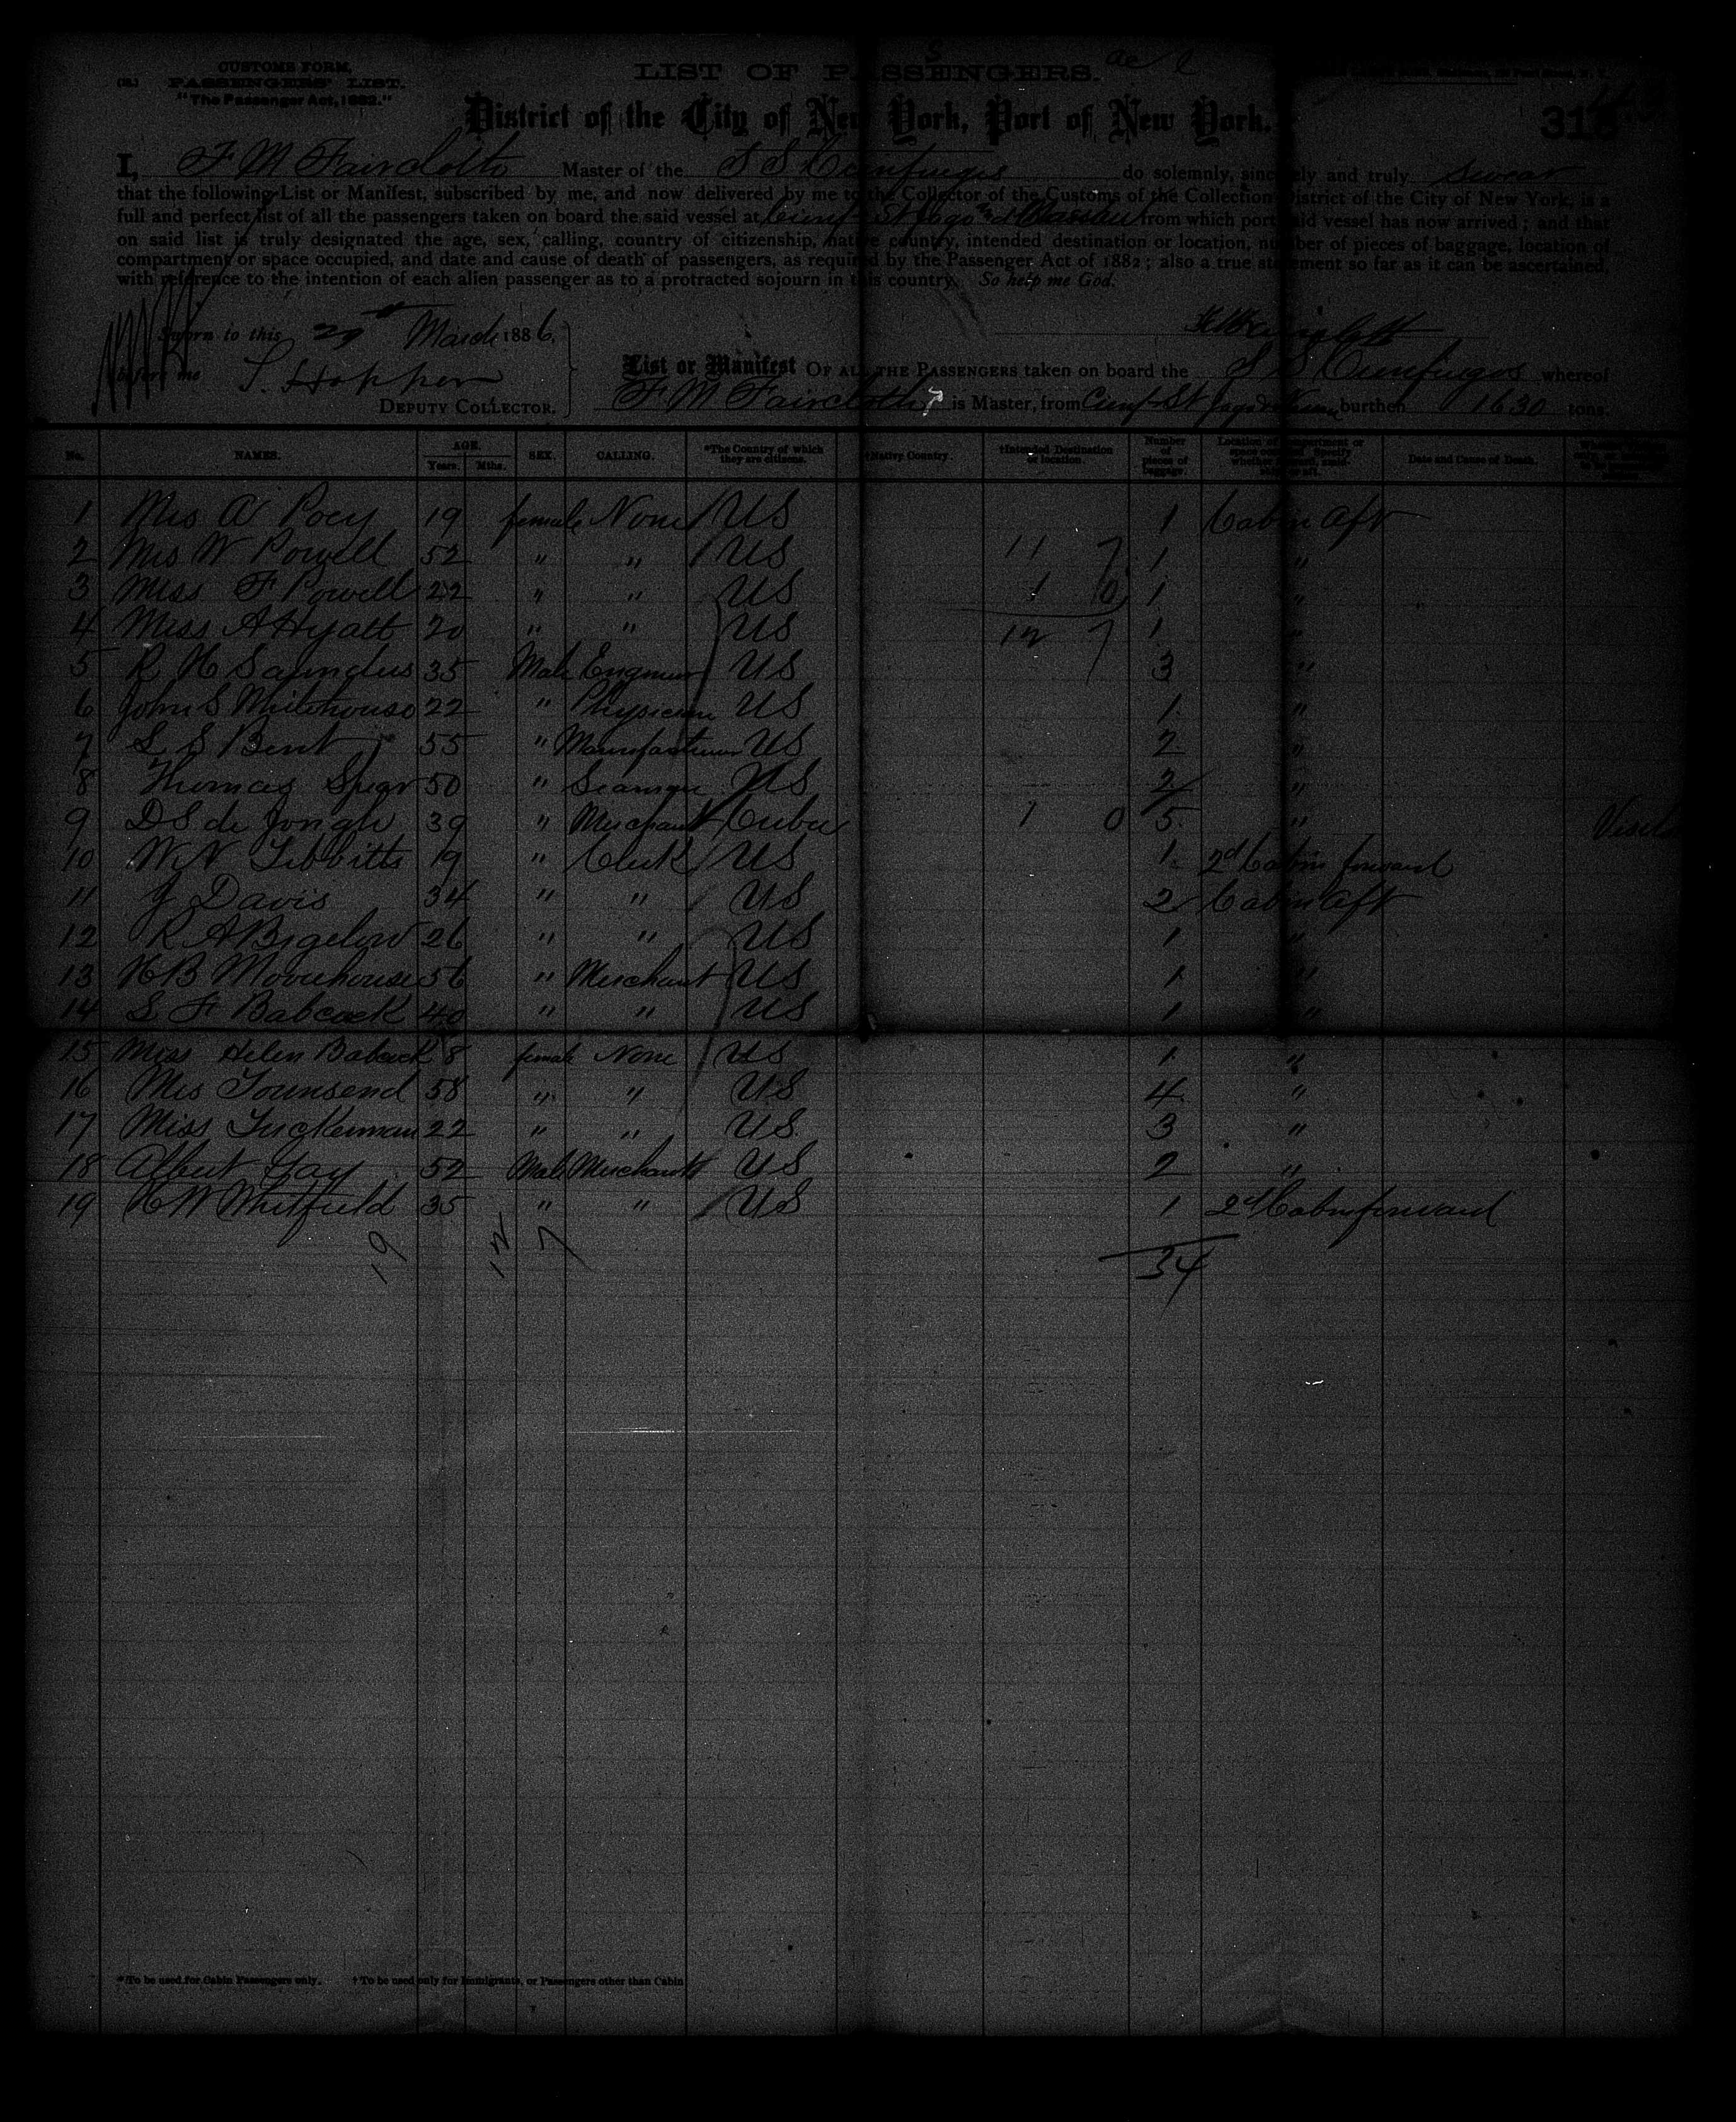 CUSTOMS FORM.
PASSENGERS' LIST.
"The Passenger Act, 1882."
LIST OF PASSENGERS.
District of the City of New York, Port of New York.
I, F M Faircloth Master of the S S Cienfuegos do solemnly, sincerely and truly swear
that the following List or Manifest, subscribed by me, and now delivered by me to the Collector of the Customs of the Collection District of the City of New York, is a
full and perfect list of all the passengers taken on board the said vessel at Cienf St Jago & Nassau from which port said vessel has now arrived; and that
on said list is truly designated the age, sex, calling, country of citizenship, native country, intended destination or location, number of pieces of baggage, location of
compartment or space occupied, and date and cause of death of passengers, as required by the Passenger Act of 1882; also a true statement so far as it can be ascertained,
with reference to the intention of each alien passenger as to a protracted sojourn in this country. So help me God.
Sworn to this 29th March 1886,
before me S. Hopper
DEPUTY COLLECTOR.
List or Manifest OF ALL THE PASSENGERS taken on board the S S Cienfuegos whereof
F M Faircloth is Master, from Cienf St Jago & Nassau burthen 1630 tons.
No. NAMES. AGE. Years. Mths. SEX. CALLING. *The Country of which they are citizens. †Native Country. †Intended Destination or location. Number of pieces of baggage. Location of compartment or space occupied. Date and Cause of Death.
1 Mrs A Poey 19 female None US 1 Cabin Aft
2 Mrs W Powell 52 " " US 11 7 1 "
3 Miss F Powell 22 " " US 1 0 1 "
4 Miss A Hyatt 20 " " US 12 7 1 "
5 R H Saunders 35 Male Engineer US 3 "
6 John S Whitehouse 22 " Physician US 1 "
7 S S Bent 55 " Manufacturer US 2 "
8 Thomas Spear 50 " Seaman US 2 "
9 D S de Jongh 39 " Merchant Cuba 1 0 5 "
10 W N Tibbitts 19 " Clerk US 1 2d Cabin forward
11 J Davis 34 " " US 2 Cabin Aft
12 R A Bigelow 26 " " US 1 "
13 H B Moorehouse 56 " Merchant US 1 "
14 S F Babcock 40 " " US 1 "
15 Miss Helen Babcock 8 female None US 1 "
16 Mrs Townsend 58 " " US 4 "
17 Miss Tuckerman 22 " " US 3 "
18 Albert Gay 52 Male Merchant US 2 "
19 H W Whitfield 35 " " US 1 2d Cabin forward
19 12 7 34
*To be used for Cabin Passengers only. †To be used only for Immigrants, or Passengers other than Cabin